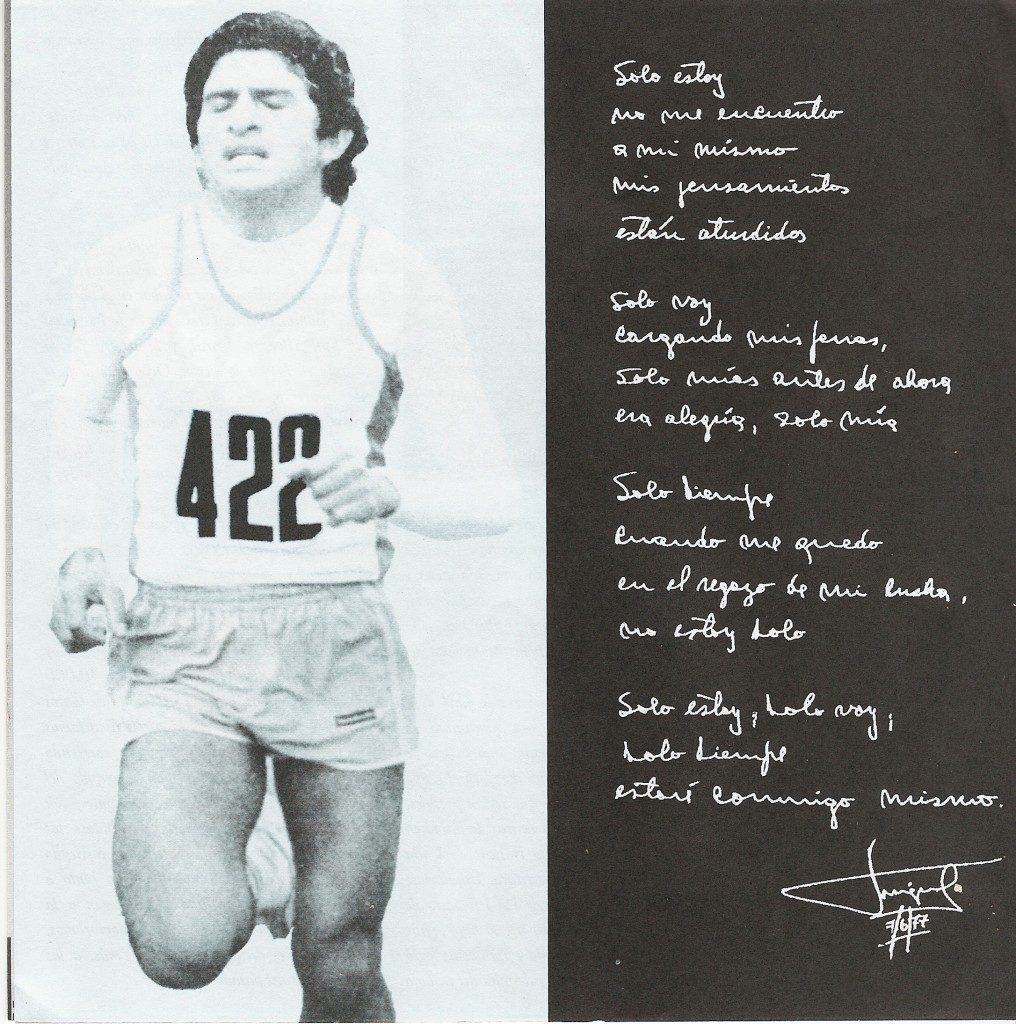 422
Solo estoy
no me encuentro
a mi mismo
mis pensamientos
están aturdidos
Solo voy
cargando mis penas,
solo mías antes de ahora
era alegría, solo mía
Solo siempre
cuando me quedo
en el regazo de mi lucha,
no estoy solo
Solo estoy, solo voy,
solo siempre
estaré conmigo mismo.
7/6/77